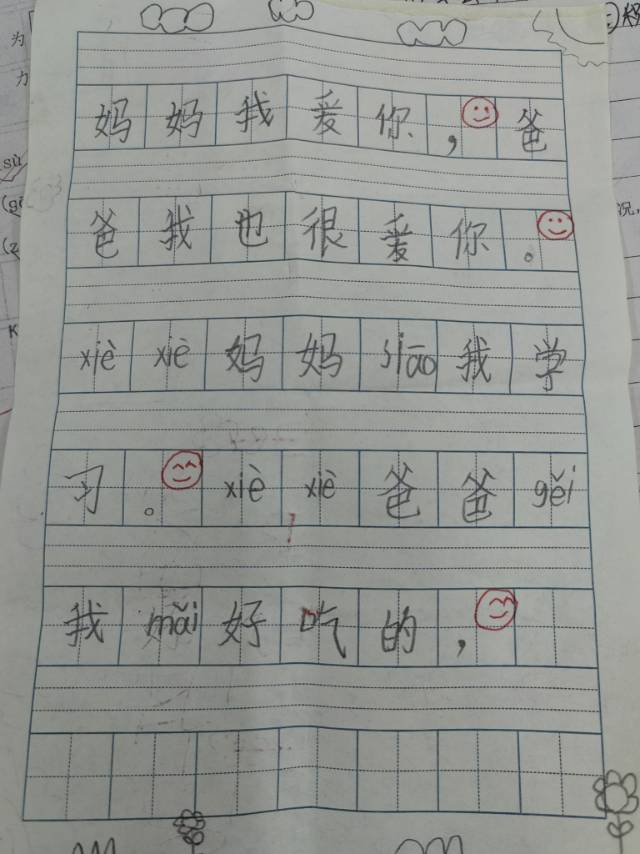 妈妈我爱你，爸
爸我也很爱你。
xiè xiè 妈妈 jiāo 我学
习。xiè xiè 爸爸 gěi
我 mǎi 好吃的，